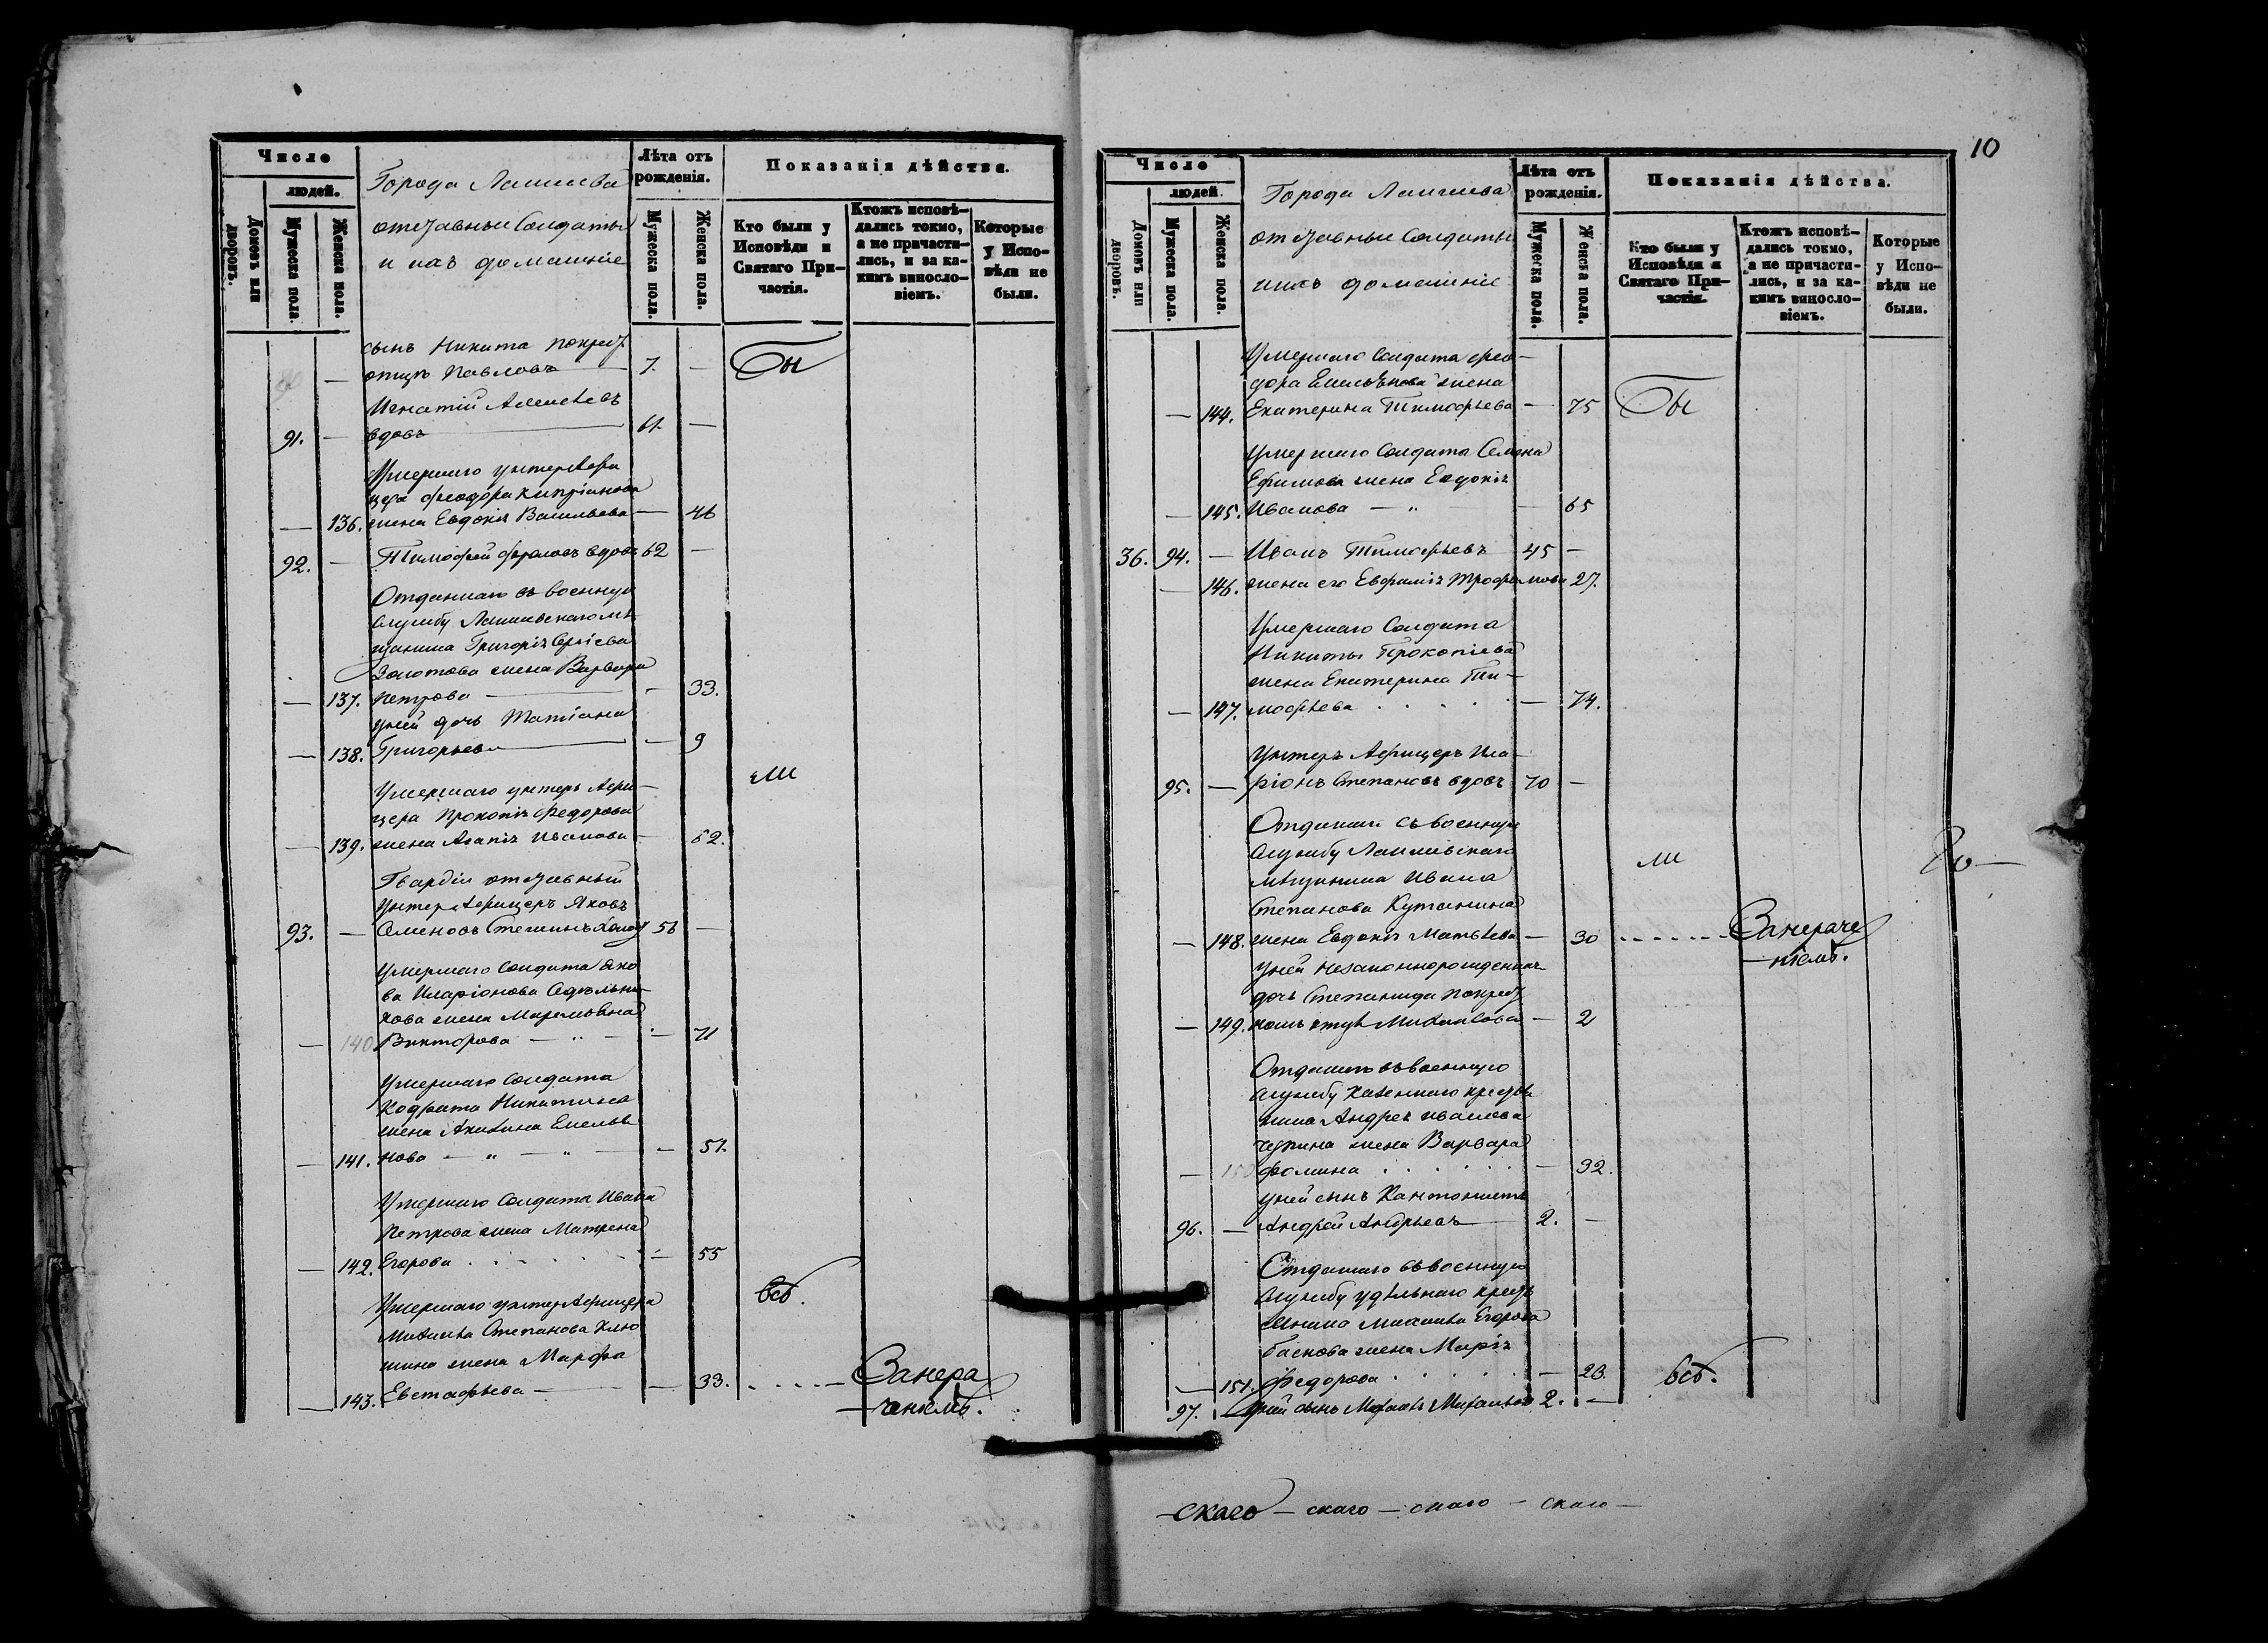 Число
людей.
Домовъ или дворовъ.
Мужеска пола.
Женска пола.
Города Лаишева
отставные Солдаты
и ихъ домашніе
Лѣта отъ рожденія.
Мужеска пола.
Женска пола.
Показанія дѣйства.
Кто были у Исповѣди и Святаго Причастія.
Ктожъ исповѣдались токмо, а не причастились, и за какимъ винословіемъ.
Которые у Исповѣди не были.
сынъ Никита
— Павловъ — 7. — Бы
Игнатій Алексѣевъ
91. — вдовъ — 61. —
Умершаго унтеръ Афи
цера Феодора Кипріанова
— 136. жена Евдокія Васильева — 46
92. — Тимофей вдовъ 62 —
Отданнаго въ военную
службу Лаишевскаго мѣ-
щанина Григорія
Золотова жена Варвара
— 137. Петрова — 33.
у ней дочь Татіана
— 138. Григорьева — 9
Умершаго унтеръ Афи-
цера Прокопія Федорова
ли
— 139. жена Агапія Иванова — 62.
Гвардіи отставный
Унтеръ Афицеръ Яковъ
93. — Семеновъ 56 —
Умершаго Солдата Яко
ва Иларіонова
кова жена
— 140 Викторова — " — 71
Умершаго Солдата
Кодрата Никитина
жена Акилина Емелья
— 141. нова — " — " — 51.
Умершаго Солдата Ивана
Петрова жена Матрена
— 142. Егорова . . . . — 55
Умершаго унтеръ Афицера
всѣ.
Михаила Степанова Клю
шина жена Марфа
— 143. Евстафьева — 33. . . . . — Занера
— ченіемъ.
10
Число
людей
Домовъ или дворовъ.
Мужеска пола.
Женска пола.
Города Лаишева
отставные Солдаты
ихъ домашніе
Лѣта отъ рожденія.
Мужеска пола.
Женска пола.
Показанія дѣйства.
Кто были у Исповѣди и Святаго Причастія.
Ктожъ исповѣдались токмо, а не причастились, и за какимъ винословіемъ.
Которые у Исповѣди не были.
Умершаго Солдата Фео-
дора Емельянова жена
— 144. Екатерина Тимофѣева — 75 Бы
Умершаго Солдата Семена
Ефимова жена Евдокія
— 145. Иванова — " — 65
36. 94. — Иванъ Тимофѣевъ 45 —
— 146. жена его Евфимія Трофимова 27.
Умершаго Солдата
Никиты Прокопіева
жена Екатерина Ти-
— 147. мофѣева . . . . . — 74.
Унтеръ Афицеръ Ила-
95. — ріонъ Степановъ вдовъ 70 —
Отданнаго въ военную
службу Лаишевскаго
ли
мѣщанина Ивана
Степанова
— 148. жена Евдокія Матвѣева — 30 . . . . . . . Занераче
— ніемъ.
у ней незаконнорожденная
дочь Степанида
— 149. Михайлова — 2
Отданнаго въ военную
службу Казеннаго кресть
нина Андрея Иванова
жена Варвара
— 150 Фомина . . . . . . — 32.
у ней сынъ Кантонистъ
96. — Андрей Андрѣевъ — 2. —
Отданнаго въ военную
службу удѣльнаго кресть
янина Михаила Егорова
Баскова жена Марія
— 151. Федорова . . . . . — 23. всѣ.
97. — у ней сынъ Михаилъ Михайловъ 2. —
—скаго — скаго — скаго — скаго —